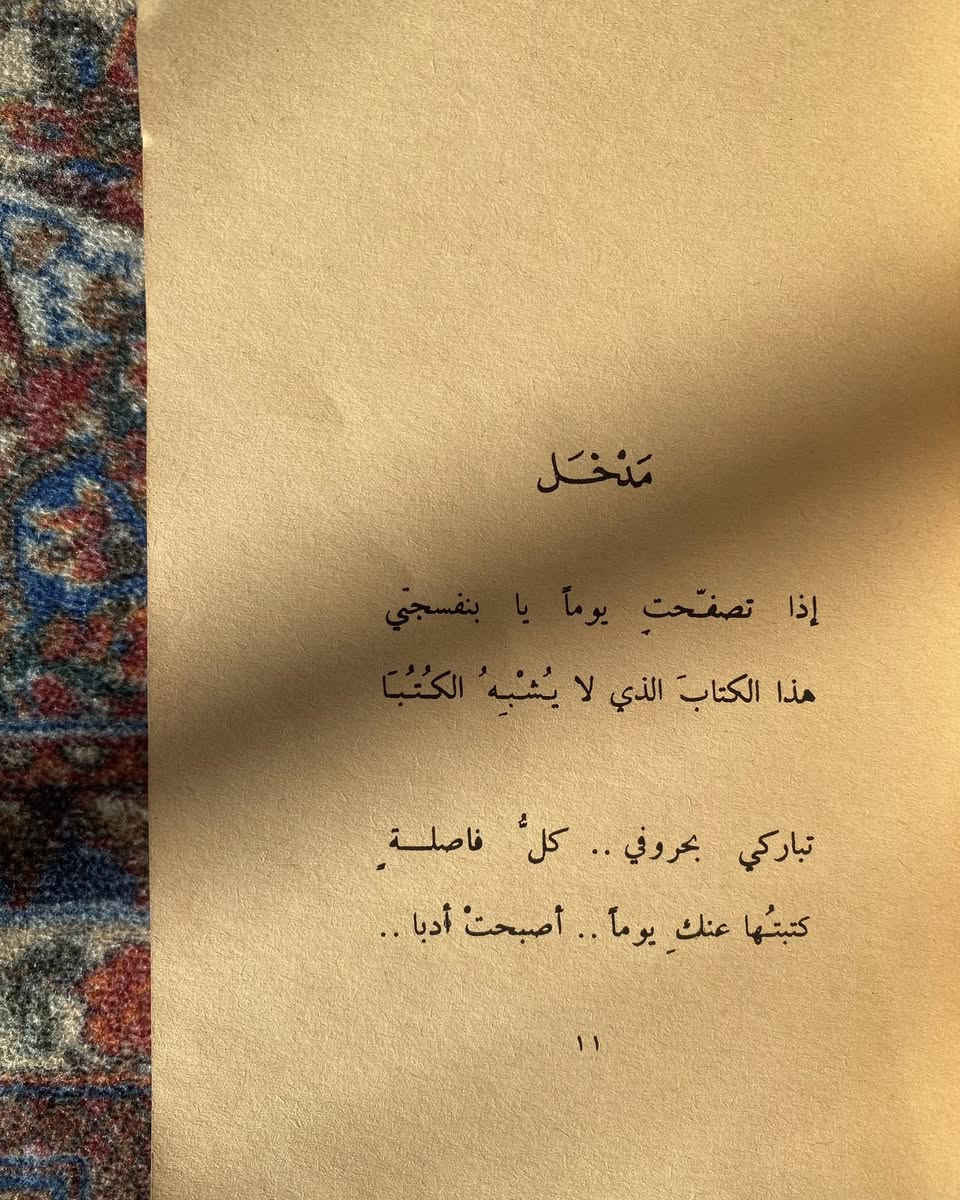 مَدْخَل
إذا تصفّحتِ يوماً يا بنفسجتي
هذا الكتابَ الذي لا يُشْبِهُ الكُتُبَا
تباركي بحروفي .. كلُّ فاصلةٍ
كتبتُها عنكِ يوماً .. أصبحتْ أدبا ..
١١